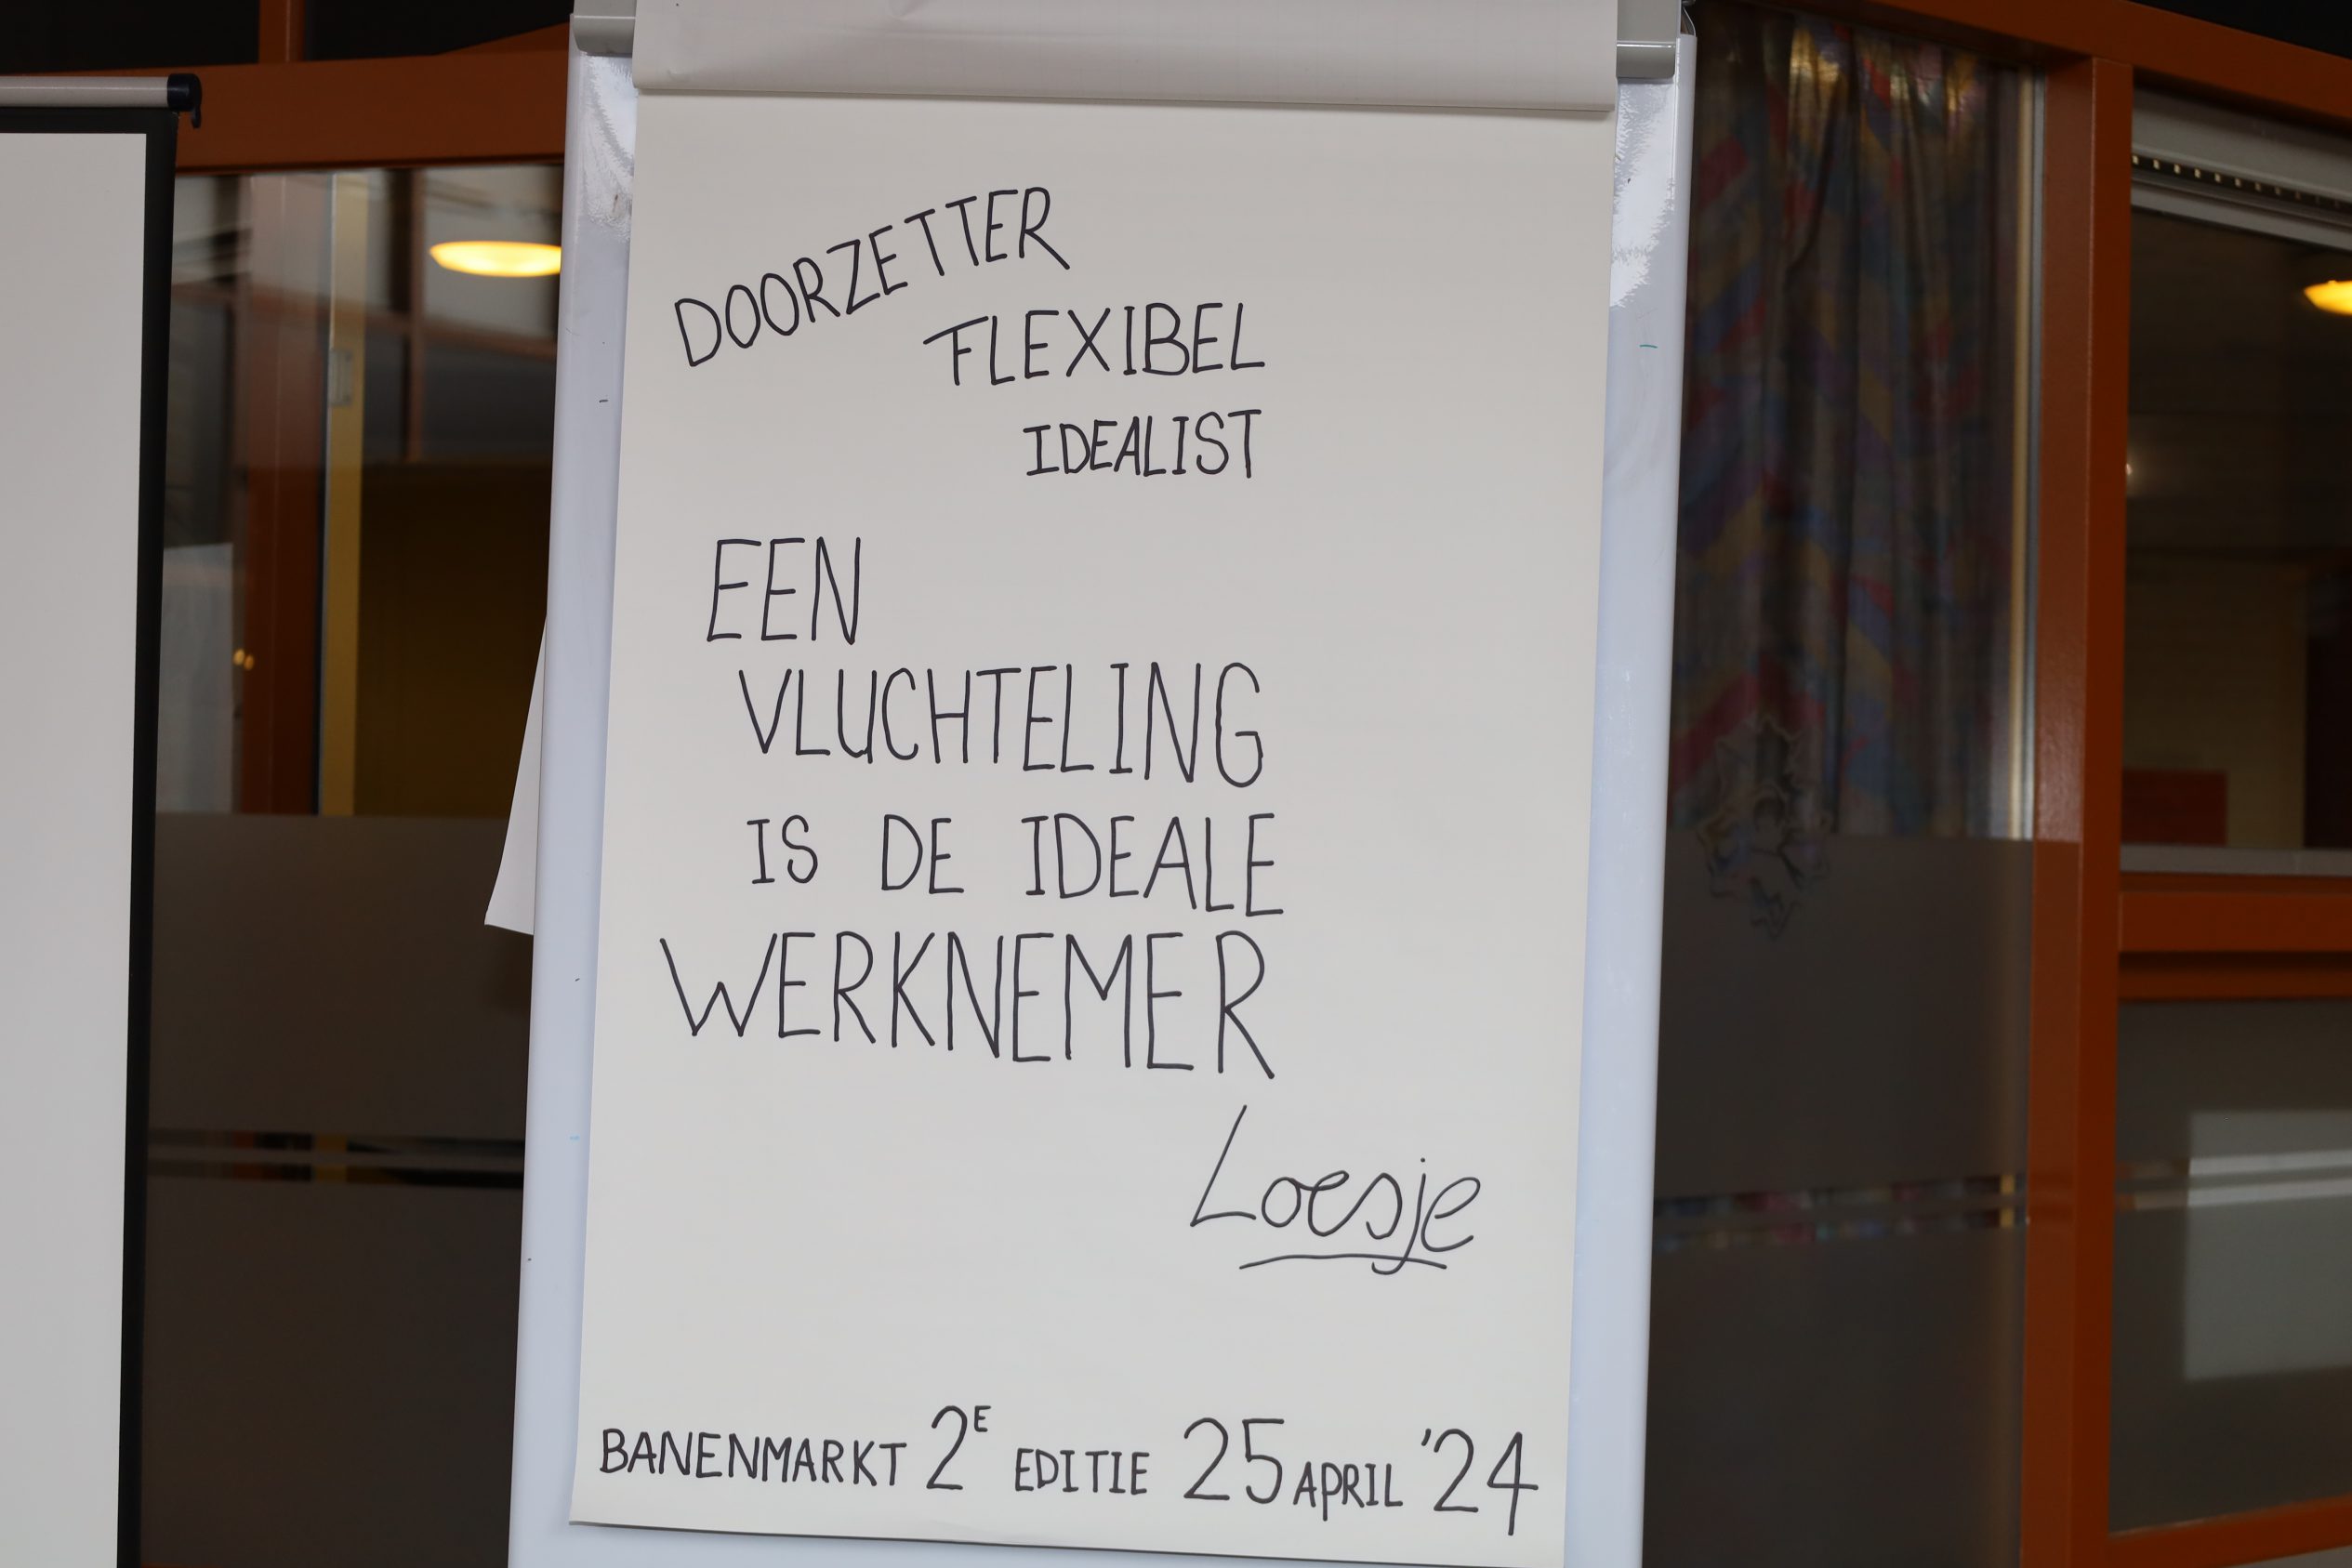 DOORZETTER
FLEXIBEL
IDEALIST
EEN
VLUCHTELING
IS DE IDEALE
WERKNEMER
Loesje
BANENMARKT 2E EDITIE 25 APRIL '24